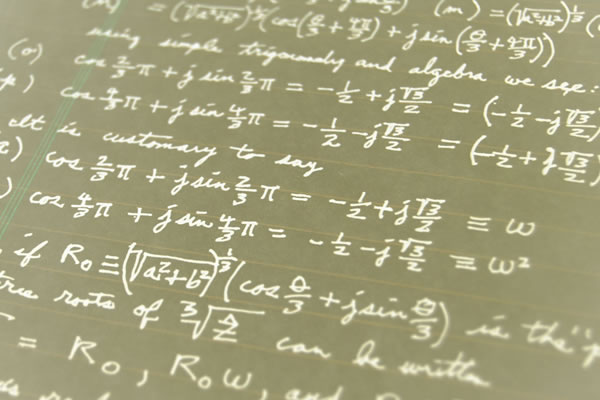 (m) = (√a²+b²)^⅓ (cos(θ/3 + 4π/3) + j sin(θ/3 + 4π/3))
using simple trigonometry and algebra we see:
(o) cos 2/3 π + j sin 2/3 π = -1/2 + j √3/2 = (-1/2 - j √3/2)
p) cos 4/3 π + j sin 4/3 π = -1/2 - j √3/2 = (-1/2 + j √3/2)
It is customary to say
cos 2/3 π + j sin 2/3 π = -1/2 + j √3/2 ≡ ω
cos 4/3 π + j sin 4/3 π = -1/2 - j √3/2 ≡ ω²
if R₀ ≡ (√a²+b²)^⅓ (cos θ/3 + j sin θ/3) is the "p
roots of ∛z can be written
= R₀, R₀ω, and